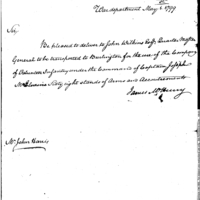 War department May 2d 1799
Sir,
Be pleased to deliver to John Wilkins Esqr. Quarter Master
General to be transported to Burlington for the use of the Company
of Volunteer Infantry under the command of Captain Joseph
McIlvaine Sixty eight stands of Arms and Accoutrements
James McHenry
Mr. John Harris